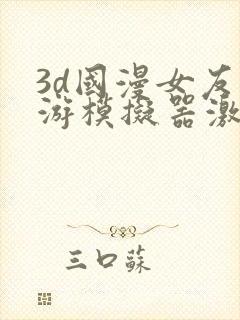 3d國漫女友
游模擬器激
三口蘇